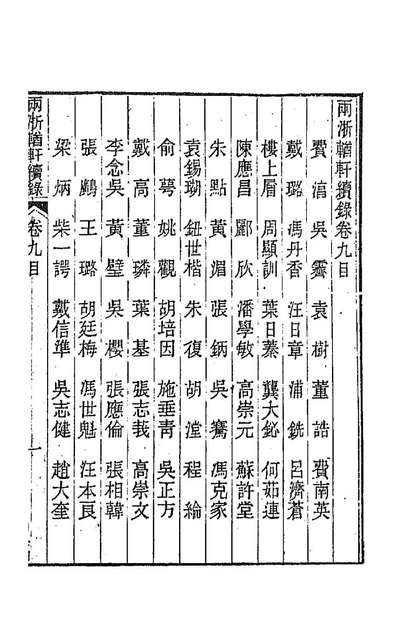 兩浙輶軒續錄卷九目
費淯 吳霽 袁樹 董誥 費南英
戴璐 馮丹香 汪日章 浦銑 呂濟蒼
樓上層 周顯訓 葉日蓁 龔大鈖 何茹連
陳應昌 酈欣 潘學敏 高崇元 蘇許堂
朱點 黃湄 張鈵 吳騫 馮克家
袁錫瑚 鈕世楷 朱復 胡瀅 程綸
俞萼 姚觀 胡培因 施垂青 吳正方
戴高 董璘 葉基 張志莪 高崇文
李念吳 黃璧 吳櫻 張應倫 張相韓
張鷉 王璐 胡廷梅 馮世魁 汪本良
梁炳 柴一諤 戴信準 吳志健 趙大奎
兩浙輶軒續錄 卷九目 一